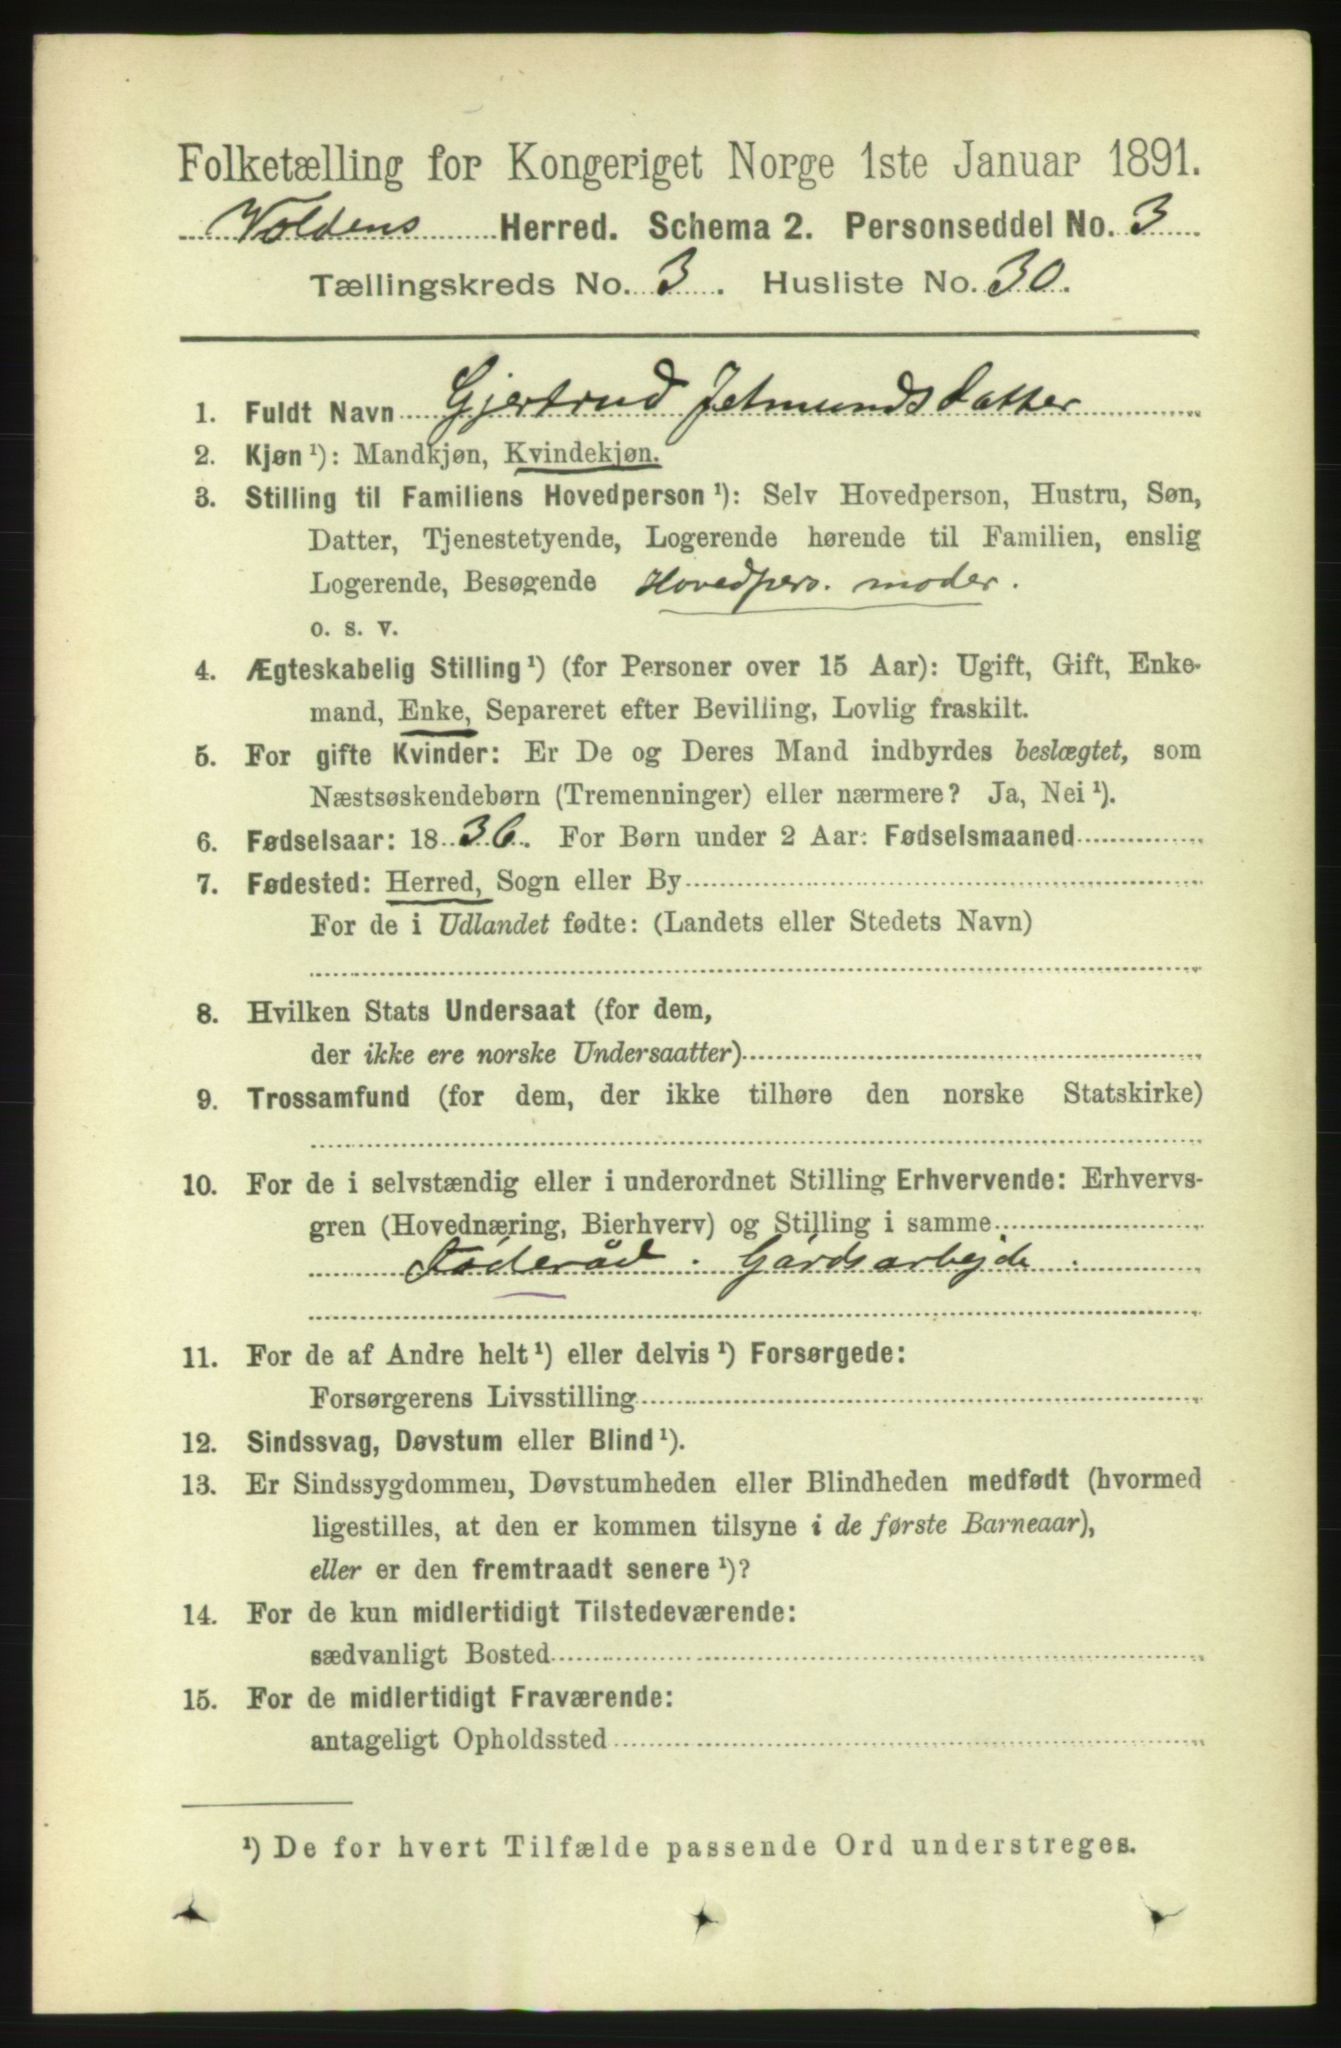 Folketælling for Kongeriget Norge 1ste Januar 1891.
Voldens Herred. Schema 2. Personseddel No. 3
Tællingskreds No. 3. Husliste No. 30.
1. Fuldt Navn Gjertrud Jetmundsdatter
2. Kjøn ¹): Mandkjøn, Kvindekjøn.
3. Stilling til Familiens Hovedperson ¹): Selv Hovedperson, Hustru, Søn,
Datter, Tjenestetyende, Logerende hørende til Familien, enslig
Logerende, Besøgende Hovedpers. moder.
o. s. v.
4. Ægteskabelig Stilling ¹) (for Personer over 15 Aar): Ugift, Gift, Enke-
mand, Enke, Separeret efter Bevilling, Lovlig fraskilt.
5. For gifte Kvinder: Er De og Deres Mand indbyrdes beslægtet, som
Næstsøskendebørn (Tremenninger) eller nærmere? Ja, Nei ¹).
6. Fødselsaar: 1836. For Børn under 2 Aar: Fødselsmaaned
7. Fødested: Herred, Sogn eller By
For de i Udlandet fødte: (Landets eller Stedets Navn)
8. Hvilken Stats Undersaat (for dem,
der ikke ere norske Undersaatter)
9. Trossamfund (for dem, der ikke tilhøre den norske Statskirke)
10. For de i selvstændig eller i underordnet Stilling Erhvervende: Erhvervs-
gren (Hovednæring, Bierhverv) og Stilling i samme
Føderåd. Gårdsarbejde.
11. For de af Andre helt ¹) eller delvis ¹) Forsørgede:
Forsørgerens Livsstilling
12. Sindssvag, Døvstum eller Blind ¹).
13. Er Sindssygdommen, Døvstumheden eller Blindheden medfødt (hvormed
ligestilles, at den er kommen tilsyne i de første Barneaar),
eller er den fremtraadt senere ¹)?
14. For de kun midlertidigt Tilstedeværende:
sædvanligt Bosted
15. For de midlertidigt Fraværende:
antageligt Opholdssted
¹) De for hvert Tilfælde passende Ord understreges.